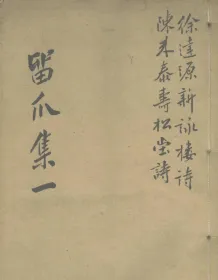 徐達源新詠樓詩
陳來泰壽松堂詩
留爪集一